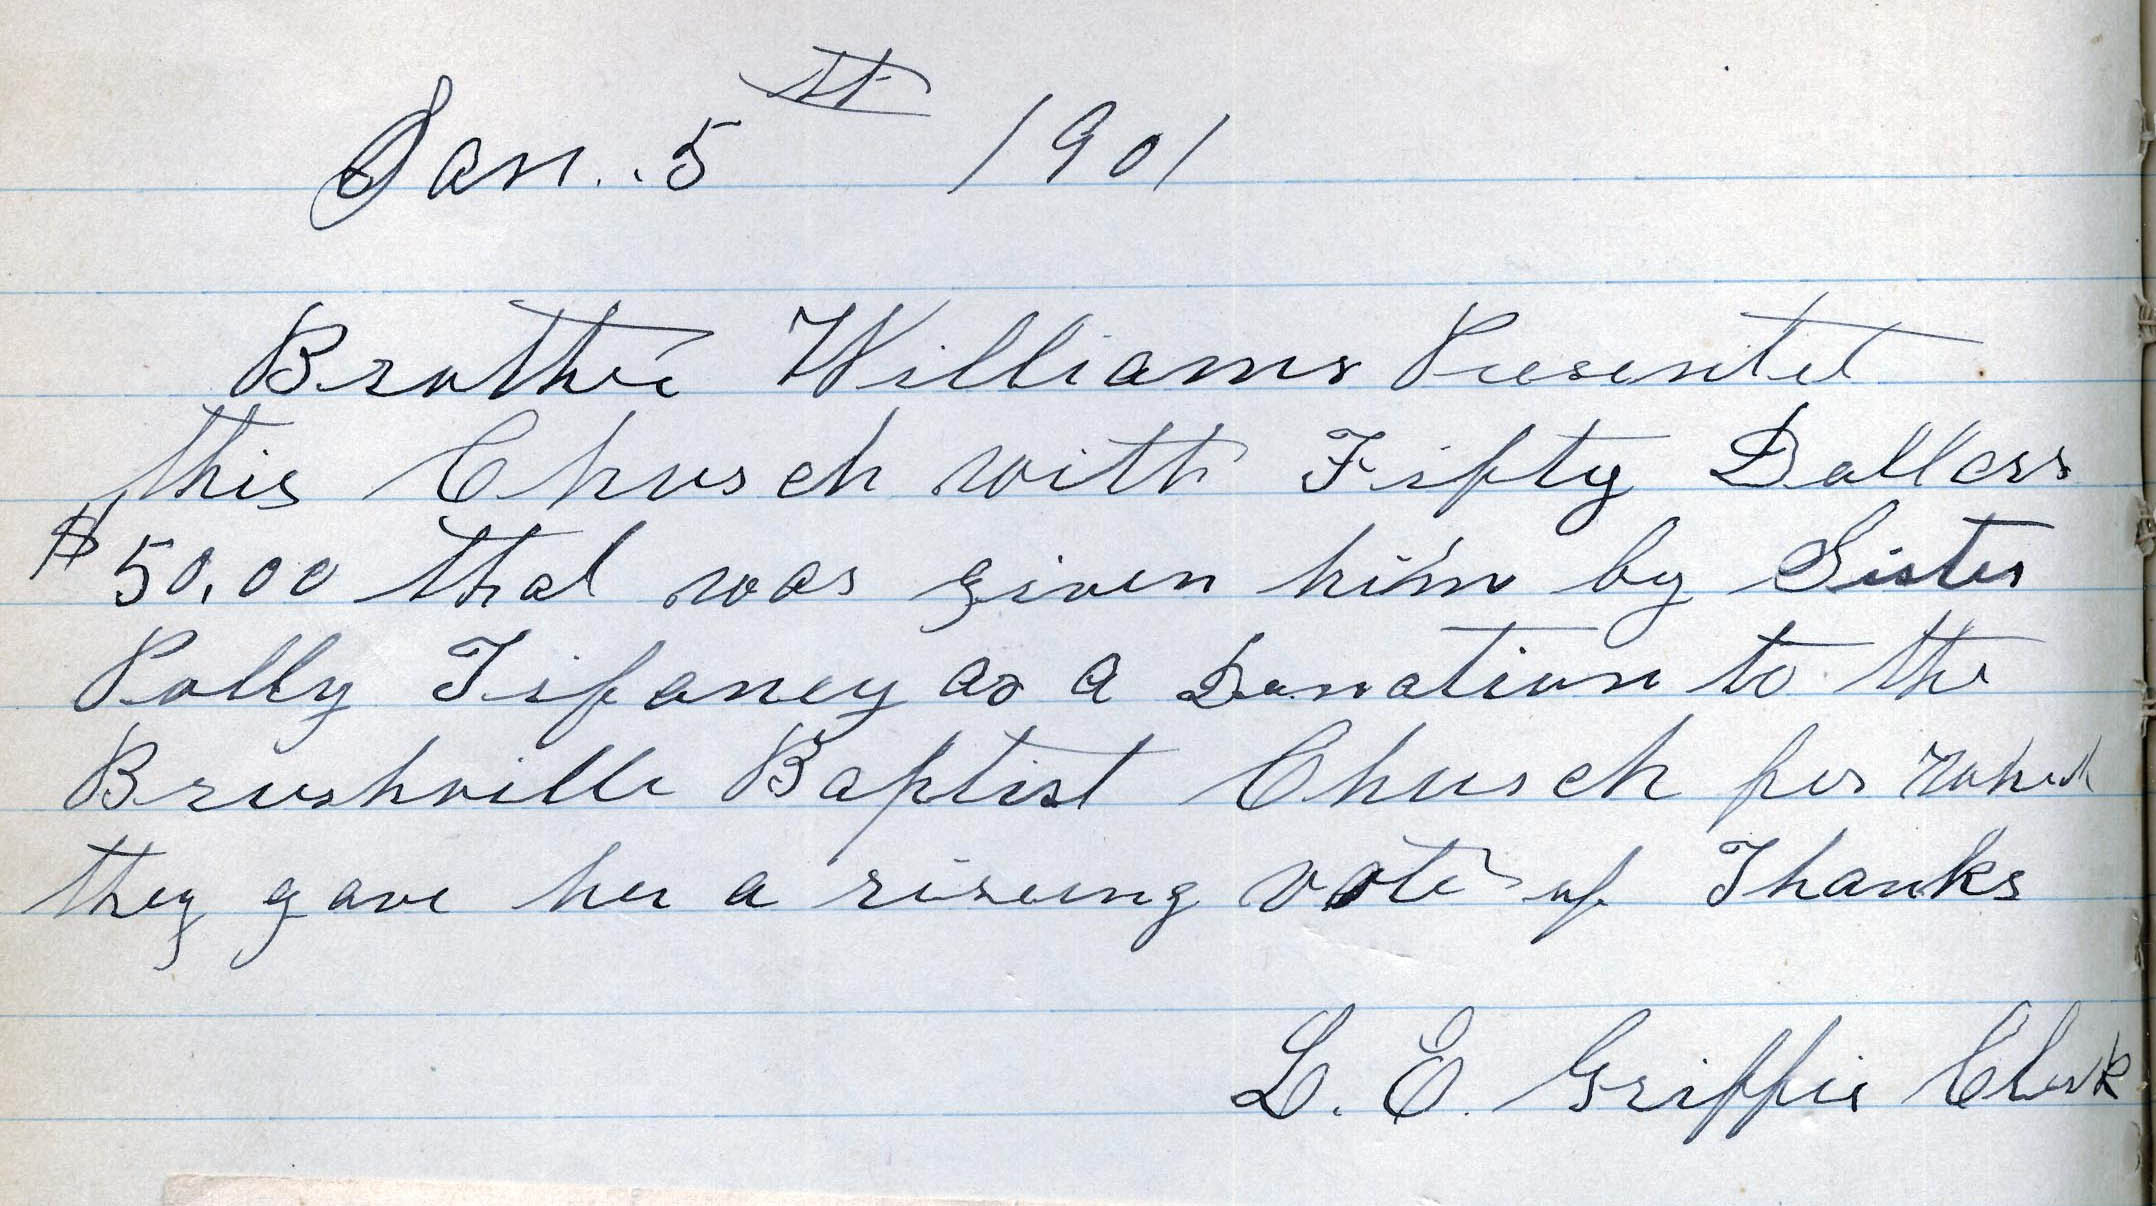 Jan. 5th 1901
Brother Williams Presentet
this Church with Fifty Dollers
$50.00 that was given him by Sister
Polly Tifaney as a Donation to the
Brushville Baptist Church for which
they gave her a riseing vote of Thanks
L. E. Griffis Clerk